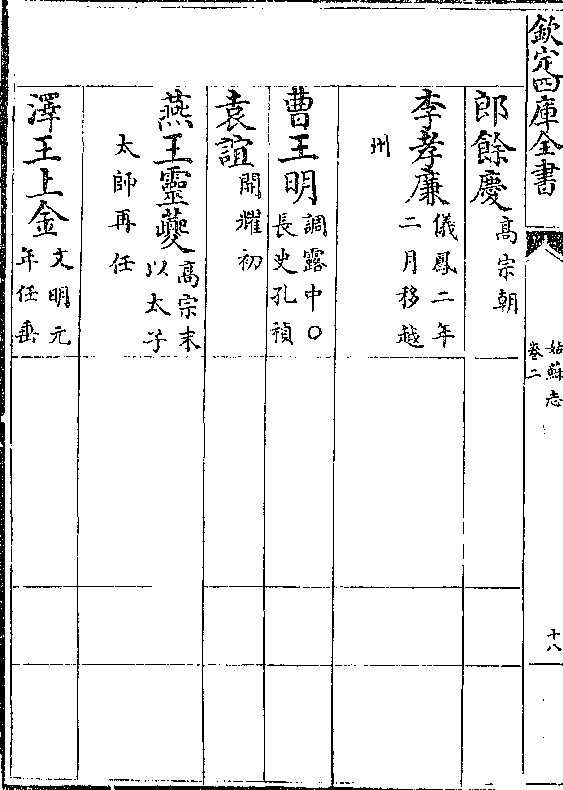 欽定四庫全書
姑蘇志
卷二
十八
郎餘慶高宗朝
李孝廉儀鳳二年二月移越
州
曹王明調露中○長史孔禎
袁誼開耀初
燕王靈夔高宗末以太子
太師再任
澤王上金文明元年任垂